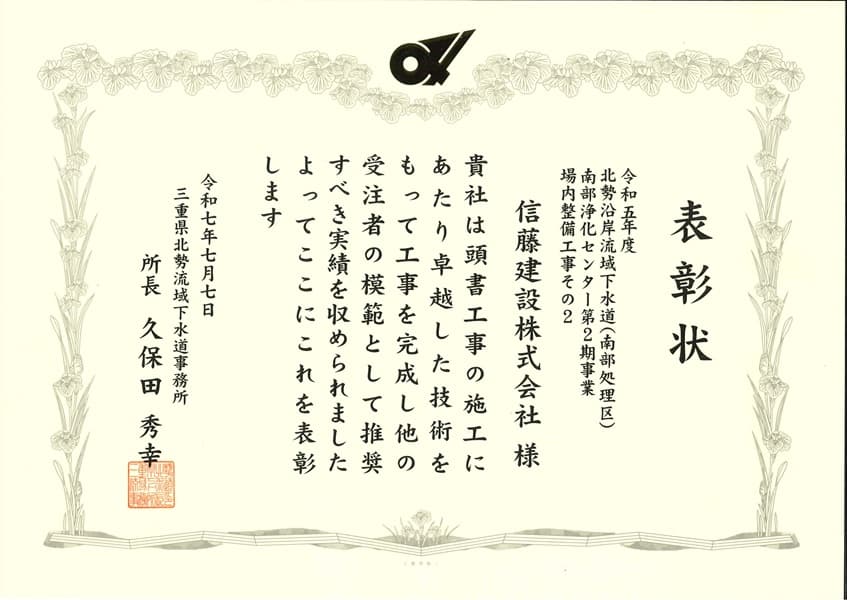 表彰状
令和五年度
北勢沿岸流域下水道(南部処理区)
南部浄化センター第2期事業
場内整備工事その2
信藤建設株式会社 様
貴社は頭書工事の施工に
あたり卓越した技術を
もって工事を完成し他の
受注者の模範として推奨
すべき実績を収められました
よってここにこれを表彰
します
令和七年七月七日
三重県北勢流域下水道事務所
所長 久保田 秀幸